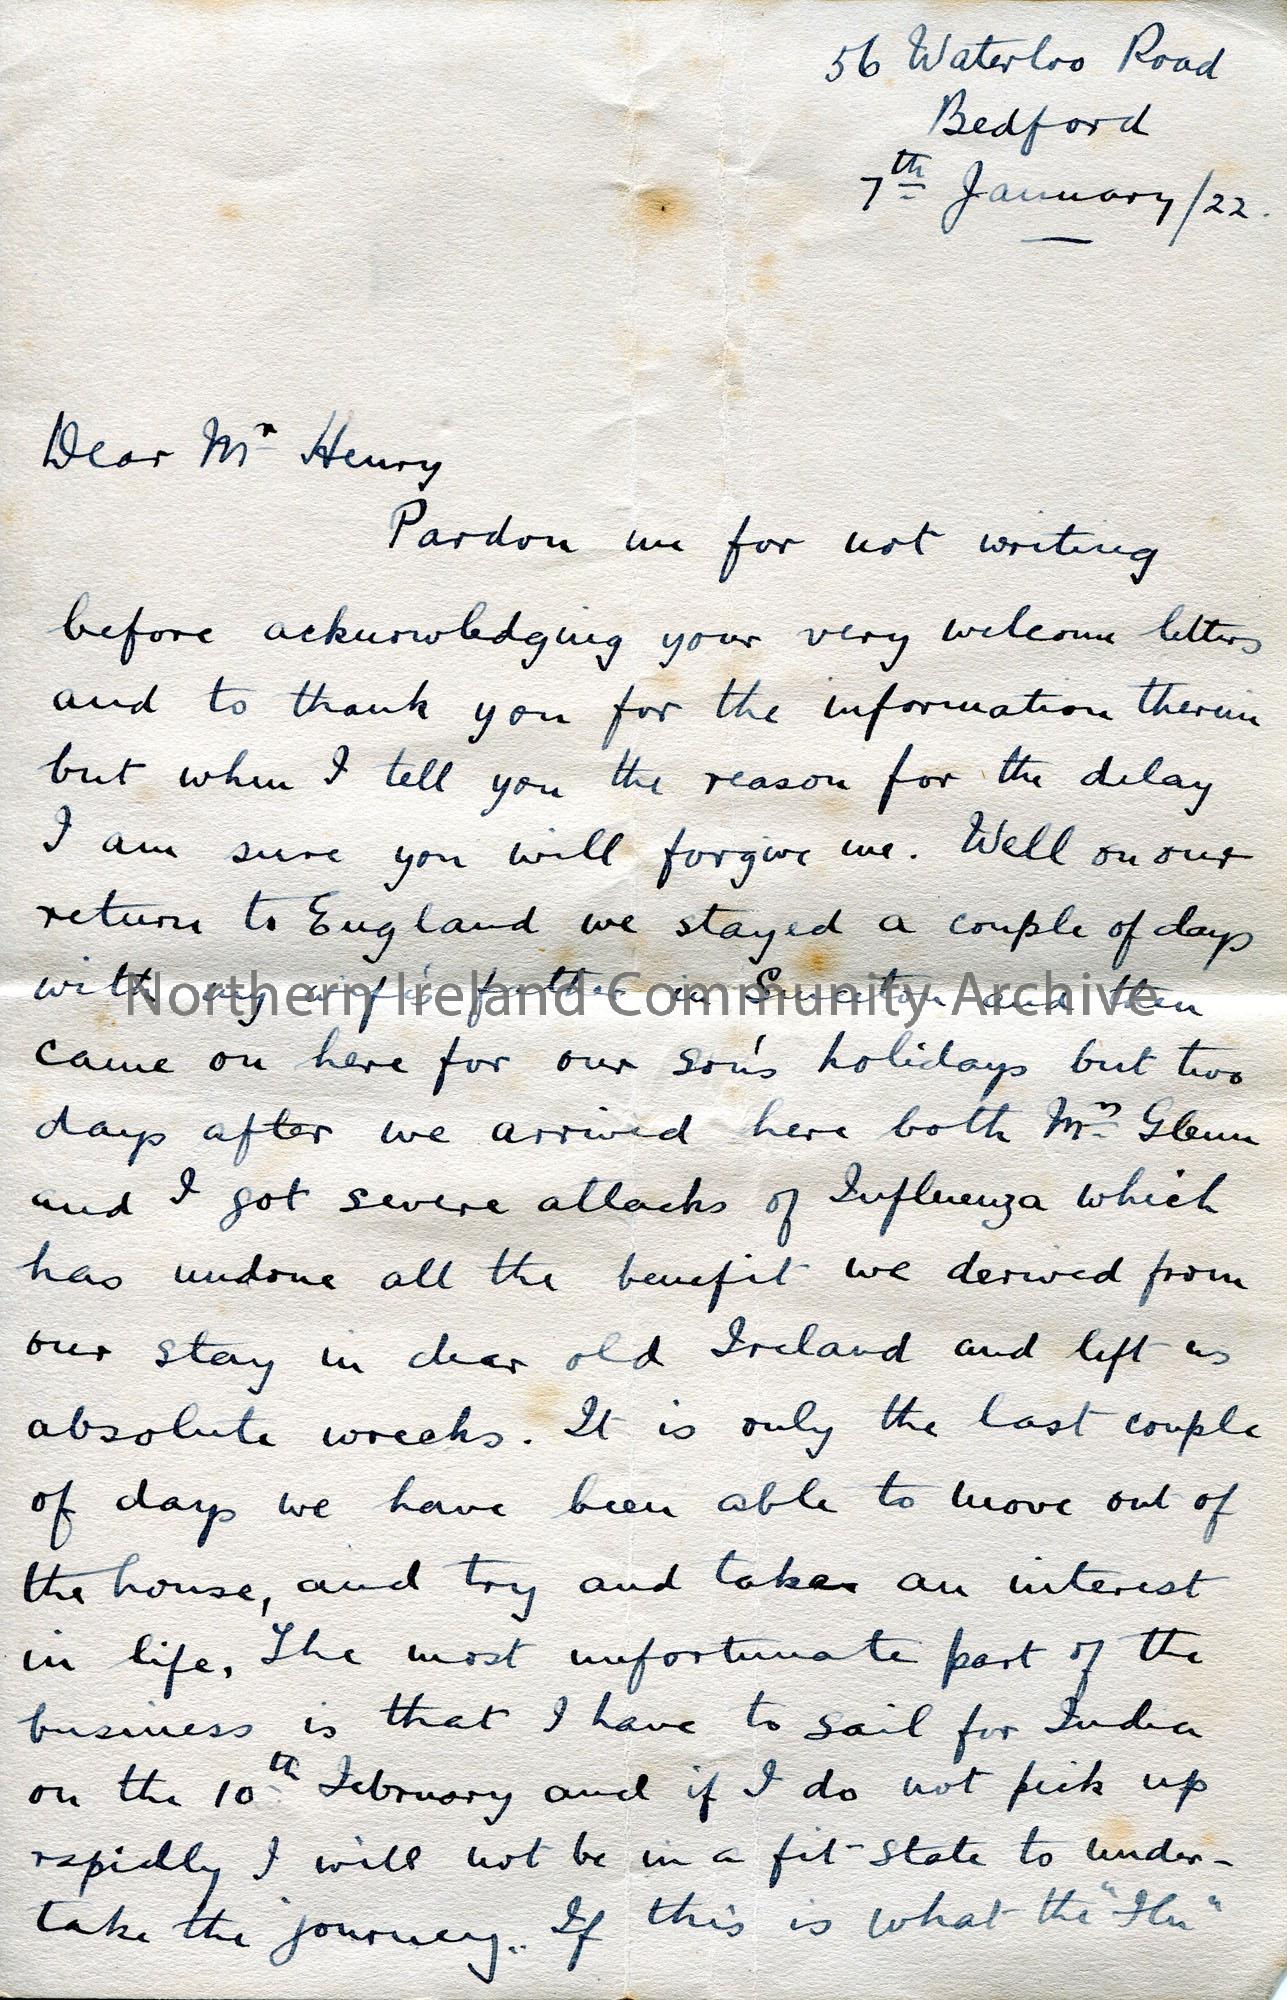 56 Waterloo Road
Bedford
7th January/22.
Dear Mr Henry
Pardon me for not writing
before acknowledging your very welcome letters
and to thank you for the information therein
but when I tell you the reason for the delay
I am sure you will forgive me. Well on our
return to England we stayed a couple of days
with my wife's father in and then
Northern Ireland Community Archive
came on here for our son's holidays but two
days after we arrived here both Mrs Glenn
and I got severe attacks of Influenza which
has undone all the benefit we derived from
our stay in dear old Ireland and left us
absolute wrecks. It is only the last couple
of days we have been able to move out of
the house, and try and take an interest
in life. The most unfortunate part of the
business is that I have to sail for India
on the 10th February and if I do not pick up
rapidly I will not be in a fit state to under-
take the journey.. If this is what the "Flu"